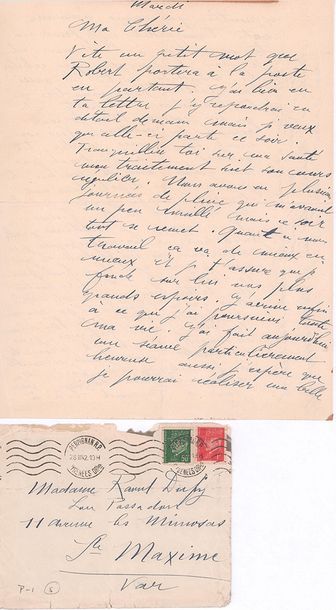 Mardi
Ma Chérie
Vite un petit mot que
Robert portera à la poste
en partant. J'ai bien eu
ta lettre j'y repondrai en
détail demain mais je veux
que celle-ci parte ce soir.
Tranquillise toi sur ma santé
mon traitement suit son cours
régulier. Nous avons eu plusieurs
journées de pluie qui m'avaient
un peu mouillé mais ce soir
tout se remet. Quant à mon
travail ça va de mieux en
mieux et je t'assure que je
fonde sur lui nos plus
grands espoirs. J'arrive enfin
à ce que j'ai poursuivi toute
ma vie. J'ai fait aujourd'hui
une séance particulièrement
heureuse aussi j'espère que
je pourrai réaliser un belle
PERPIGNAN R.P.
PYRENEES ORles
50
Madame Raoul Dufy
11 avenue les Mimosas
Ste Maxime
Var
P-1 5